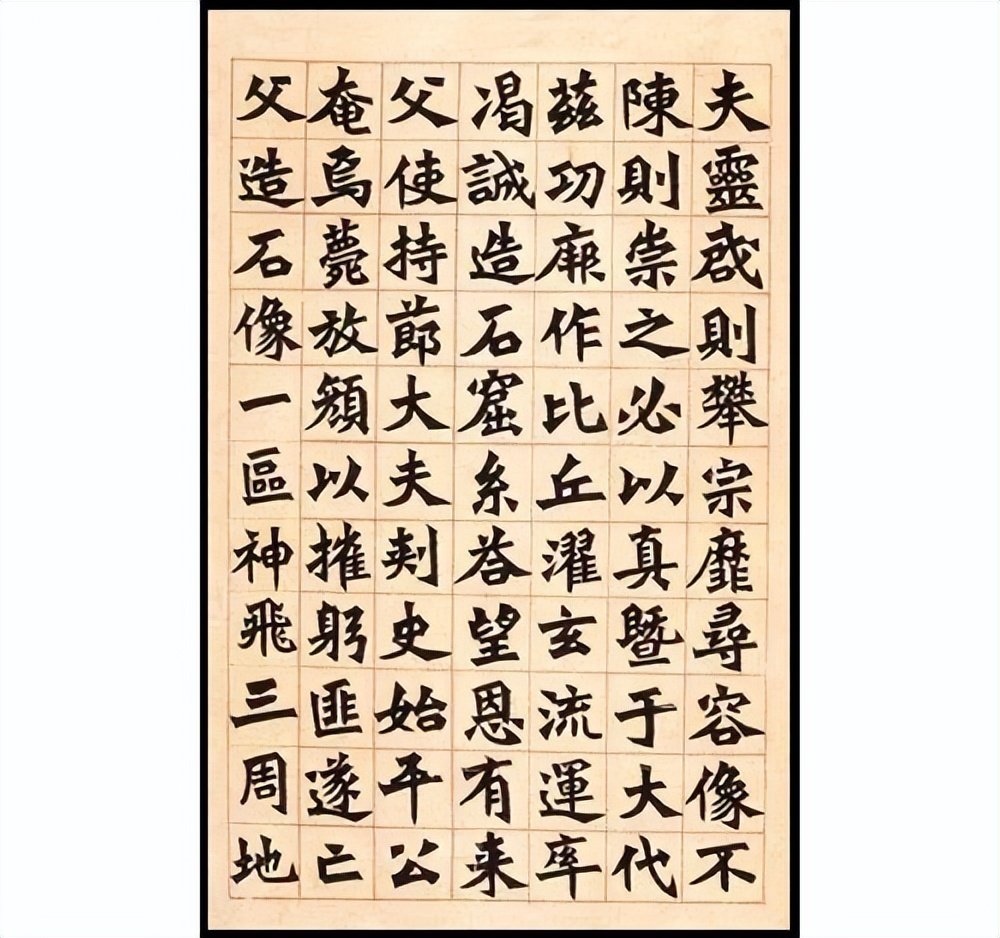 夫靈啟則攀宗靡尋容像不
陳則崇之必以真暨于大代
茲功厥作比丘濯玄流運率
渴誠造石窟系荅望恩有来
父使持節大夫刾史始平公
奄焉薨放顏以摧躬匪遂亡
父造石像一區神飛三周地